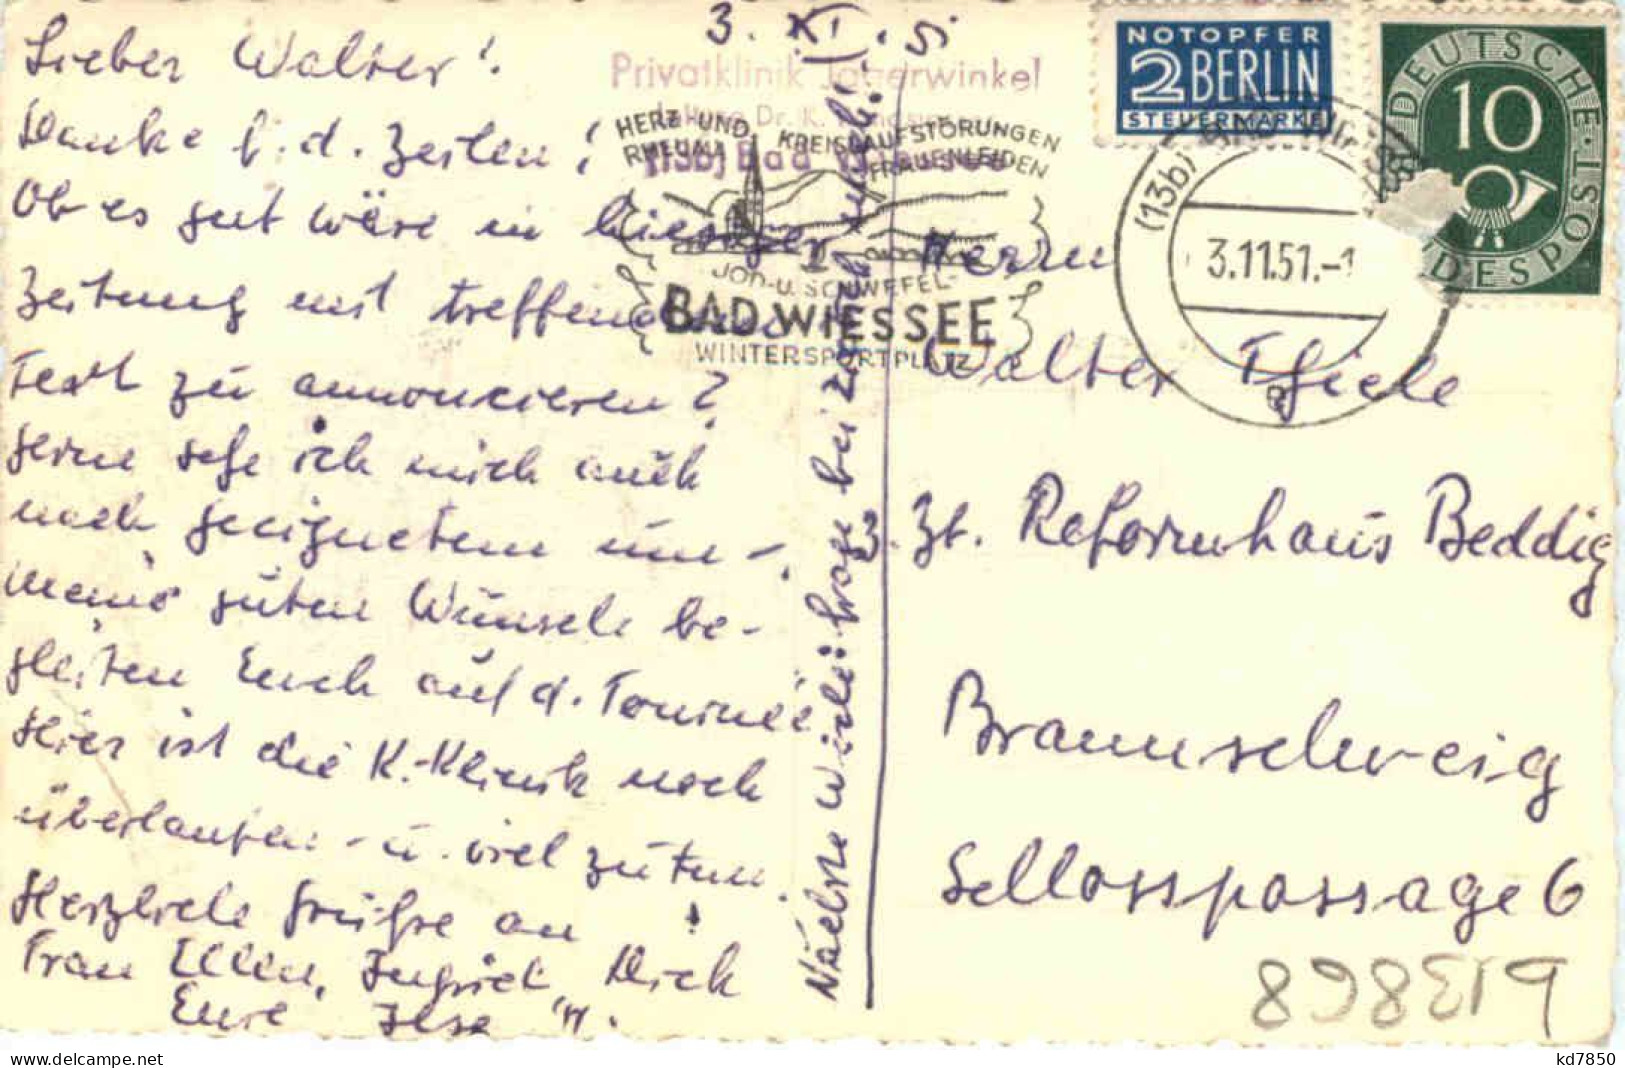 3. XI. 51
Lieber Walter!
Danke f. d. Zeilen!
Ob es gut wäre in hiesiger
Zeitung mit treffendem
Text zu annoncieren?
Gerne sehe ich mich auch
nach geeignetem um -,
meine guten Wünsche be-
gleiten Euch auf d. Tournee
Hier ist die K.-Klinik noch
überlaufen - u. viel zu tun.
Herzliche Grüße an
Frau Ellen, Ingrid, Dich
Eure Ilse H.
Nächste Woche frage bei
Privatklinik Jägerwinkel
(13b) Bad Wiessee
HERZ- UND KREISLAUFSTÖRUNGEN
RHEUMA FRAUENLEIDEN
JOD-U. SCHWEFEL-
BAD WIESSEE
WINTERSPORTPLATZ
NOTOPFER
2 BERLIN
STEUERMARKE
DEUTSCHE BUNDESPOST
10
(13b) BAD WIESSEE
3.11.51.-1
a
Herrn
Walter Thiele
z. Zt. Reformhaus Beddig
Braunschweig
Schlosspassage 6
kd7850